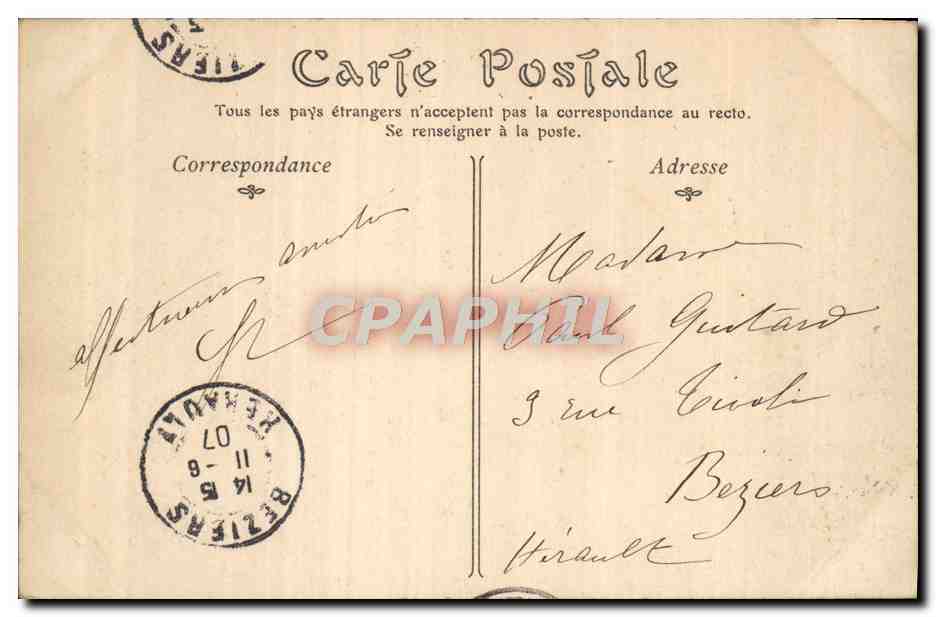 Carte Postale
Tous les pays étrangers n'acceptent pas la correspondance au recto.
Se renseigner à la poste.
Correspondance
Adresse
affectueuse amitié
Madame
Paul Guitard
3 rue Tivoli
Béziers
Hérault
CPAPHIL
BEZIERS
14 15
11 - 6
07
HERAULT
ZIERS